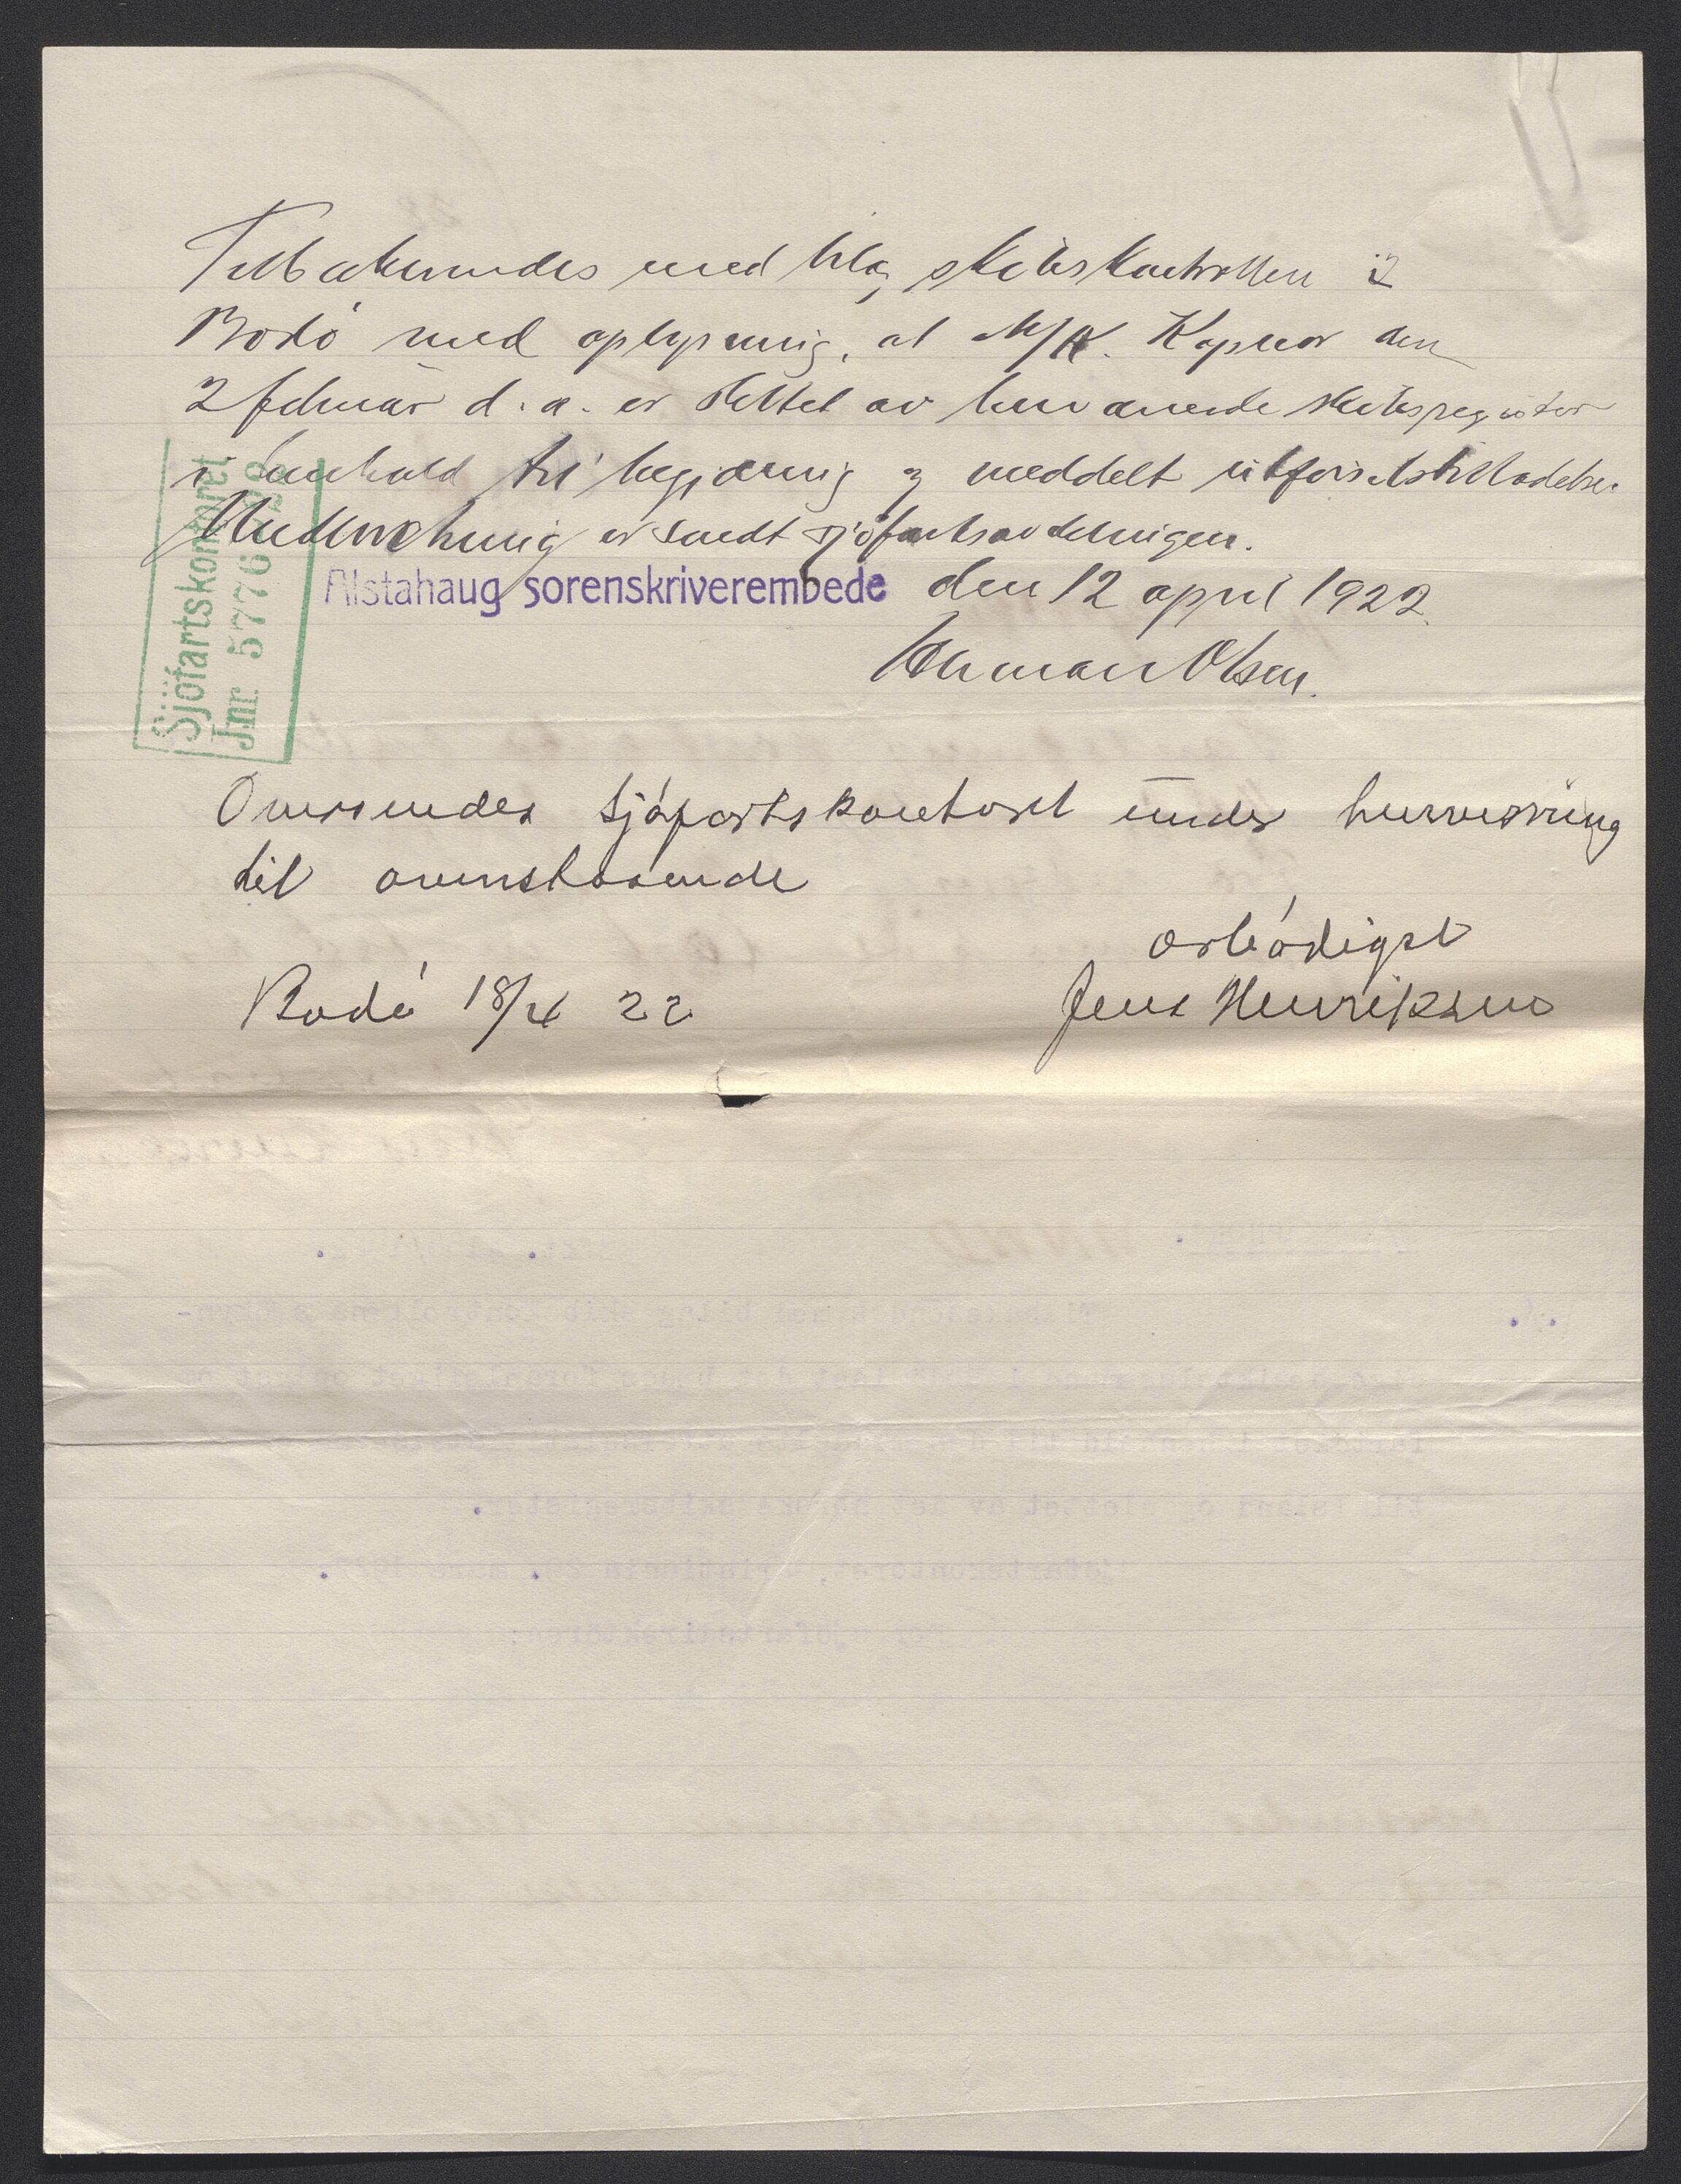 Tilbakesendes med bilag skibskontrollen i
Bodö med oplysning, at M/K. Kapnor den
2 februar d. a. er slettet av herværende skibsregister
i henhold til begjæring og meddelt utförselstilladelse.
Underretning er sendt sjöfartsavdelingen.
Alstahaug sorenskriverembede den 12 april 1922.
Olsen.
Sjöfartskontoret
Jnr 5776
Oversendes sjöfartskontoret under henvisning
til ovenstaaende
ærbödigst
Bodö 18/4 22 Jens Henriksen